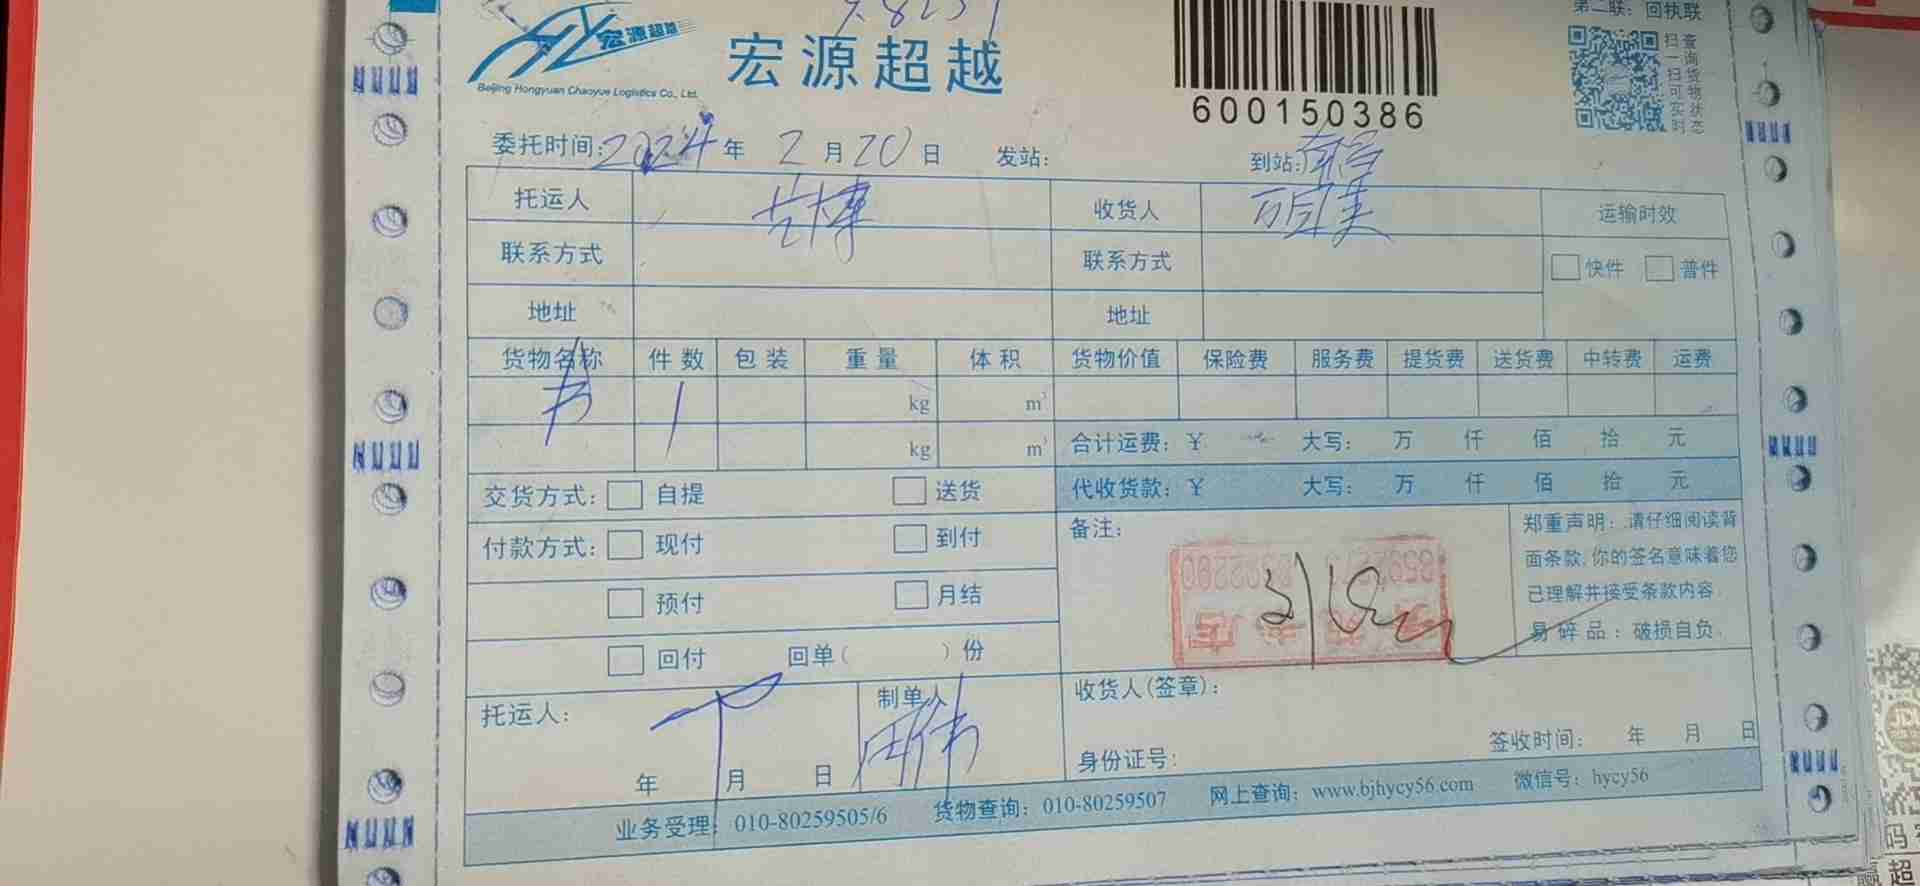 宏源超越
Beijing Hongyuan Chaoyue Logistics Co., Ltd.
宏源超越
600150386
第二联：回执联
扫一扫可实时
查询货物状态
委托时间：2024年 2月20日 发站： 到站：
托运人 收货人 运输时效
联系方式 联系方式 快件 普件
地址 地址
货物名称 件数 包装 重量 体积 货物价值 保险费 服务费 提货费 送货费 中转费 运费
书 1 kg m³
kg m³ 合计运费：¥ 大写： 万 仟 佰 拾 元
交货方式： 自提 送货 代收货款：¥ 大写： 万 仟 佰 拾 元
付款方式： 现付 到付 备注：
预付 月结
回付 回单（ ）份
郑重声明：请仔细阅读背
面条款,你的签名意味着您
已理解并接受条款内容.
易碎品：破损自负.
托运人： 制单人 收货人(签章)：
年 月 日 身份证号： 签收时间： 年 月 日
业务受理：010-80259505/6 货物查询：010-80259507 网上查询：www.bjhycy56.com 微信号：hycy56